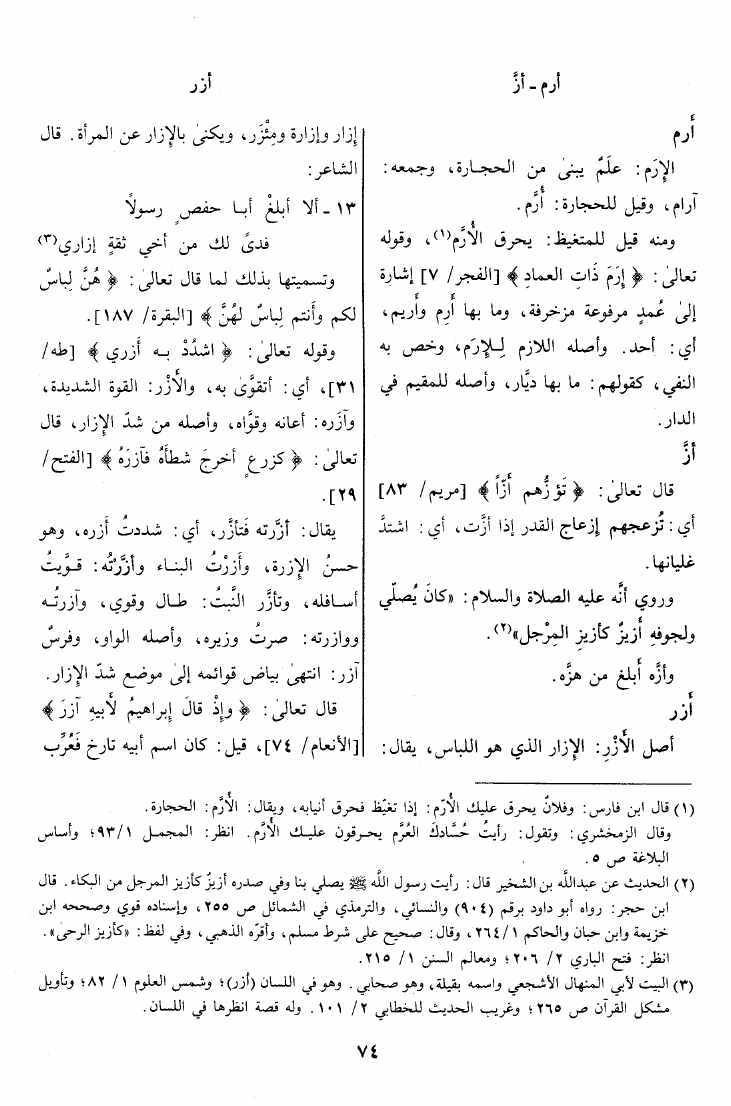 أرم - أزَّ
أزر
أرم
الإِرَم: علَمٌ يبنىٰ من الحجـارة، وجمعه:
آرام، وقيل للحجارة: أُرَّم.
ومنه قيل للمتغيظ: يحرق الأُرَّم(١)، وقوله
تعالىٰ: ﴿ إِرَمَ ذَاتِ العمادِ ﴾ [الفجر/ ٧] إشارة
إلىٰ عُمدٍ مرفوعة مزخرفة، وما بها أَرِم وأَريم،
أي: أحد. وأصله اللازم لِـلإِرَم، وخص به
النفي، كقولهم: ما بها ديَّار، وأصله للمقيم في
الدار.
أزَّ
قال تعالىٰ: ﴿ تَؤزُّهم أزّاً ﴾ [مريم/ ٨٣]
أي: تُزعجهم إزعاج القدر إذا أزَّت، أي: اشتدَّ
غليانها.
وروي أنَّه عليه الصلاة والسلام: «كانَ يُصلّي
ولجوفهِ أزيزٌ كأزيزِ المِرْجل»(٢).
وأزَّه أبلغ من هزَّه.
أزر
أصل الأَزْرِ: الإزار الذي هو اللباس، يقال:
إزار وإزارة ومِئْزَر، ويكنىٰ بالإِزار عن المرأة. قال
الشاعر:
١٣ - ألا أبلغْ أبـا حفصٍ رسولاً
فدىً لك من أخي ثقةٍ إزاري(٣)
وتسميتها بذلك لما قال تعالىٰ: ﴿ هُنَّ لِباسٌ
لكم وأَنتم لِباسٌ لهُنَّ ﴾ [البقرة/ ١٨٧].
وقوله تعالىٰ: ﴿ اشدُدْ بـه أزري ﴾ [طه/
٣١]، أي: أتقوَّىٰ به، والأَزْر: القوة الشديدة،
وآزره: أعانه وقوَّاه، وأصله من شدِّ الإزار، قال
تعالىٰ: ﴿ كزرعٍ أخرجَ شطأَهُ فآزرَهُ ﴾ [الفتح/
٢٩].
يقال: أزَّرته فَتأزَّر، أي: شددتُ أزره، وهو
حسنُ الإزرة، وأزرْتُ البناء وأزَّرْتُه: قـوَّيتُ
أسـافله، وتأزَّر النَّبتُ: طـال وقوي، وآزرتُـه
ووازرته: صرتُ وزيره، وأصله الواو، وفرسٌ
آزر: انتهىٰ بياض قوائمه إلىٰ موضع شدِّ الإزار.
قال تعالىٰ: ﴿ وإِذْ قالَ إبراهيمُ لأَبيهِ آزرَ ﴾
[الأنعام/ ٧٤]، قيل: كان اسم أبيه تارخ فَعُرِّب
(١) قال ابن فارس: وفلانٌ يحرق عليك الأُرَّم: إذا تغيّظ فحرق أنيابه، ويقال: الأُرَّم: الحجارة.
وقال الزمخشري: وتقول: رأيتُ حُسَّادكَ العُرَّم يحـرقون عليـك الأُرَّم. انظر: المجمـل ٩٣/١؛ وأساس
البلاغة ص ٥.
(٢) الحديث عن عبداللَّه بن الشخير قال: رأيت رسول اللَّه ﷺ يصلي بنا وفي صدره أزيزٌ كأزيز المرجل من البكاء. قال
ابن حجر: رواه أبو داود برقم (٩٠٤) والنسائي، والترمذي في الشمائل ص ٢٥٥، وإسناده قوي وصححه ابن
خزيمة وابن حبان والحاكم ٢٦٤/١، وقال: صحيح على شرط مسلم، وأقرّه الذهبي، وفي لفظ: «كأزيز الرحىٰ».
انظر: فتح الباري ٢/ ٢٠٦؛ ومعالم السنن ١/ ٢١٥.
(٣) البيت لأبي المنهال الأشجعي واسمه بقيلة، وهو صحابي. وهو في اللسان (أزر)؛ وشمس العلوم ١/ ٨٢؛ وتأويل
مشكل القرآن ص ٢٦٥؛ وغريب الحديث للخطابي ٢/ ١٠١. وله قصة انظرها في اللسان.
٧٤